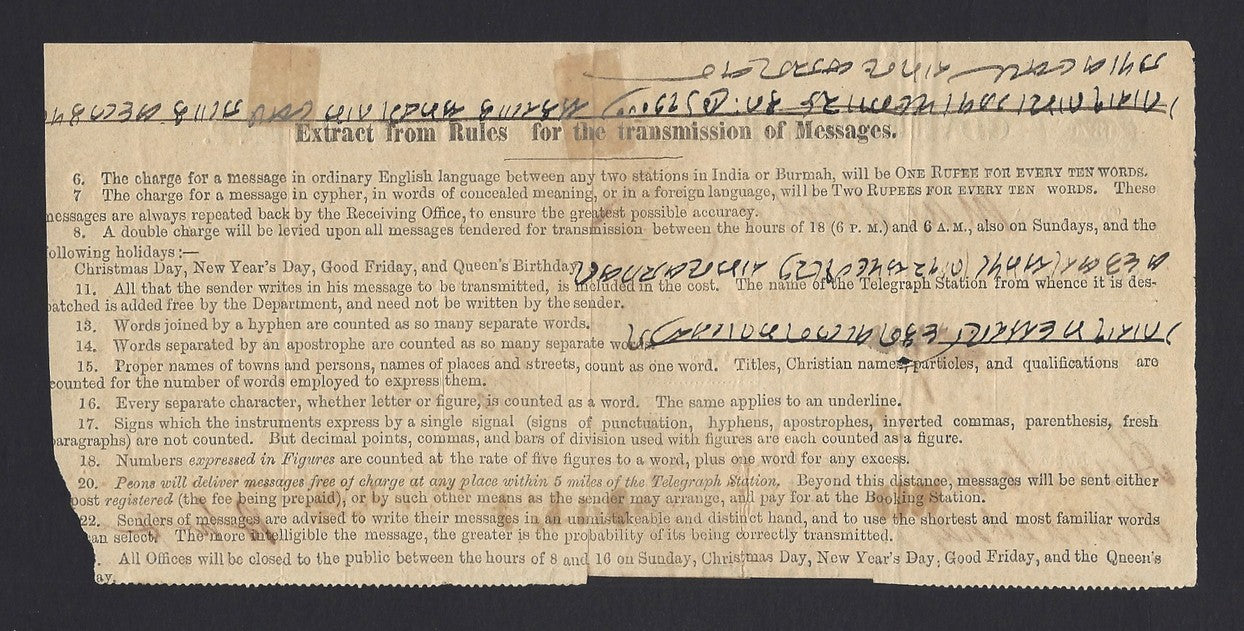 Extract from Rules for the transmission of Messages.
6. The charge for a message in ordinary English language between any two stations in India or Burmah, will be ONE RUPEE FOR EVERY TEN WORDS.
7 The charge for a message in cypher, in words of concealed meaning, or in a foreign language, will be TWO RUPEES FOR EVERY TEN WORDS. These
messages are always repeated back by the Receiving Office, to ensure the greatest possible accuracy.
8. A double charge will be levied upon all messages tendered for transmission between the hours of 18 (6 P. M.) and 6 A. M., also on Sundays, and the
ollowing holidays :—
Christmas Day, New Year's Day, Good Friday, and Queen's Birthday.
11. All that the sender writes in his message to be transmitted, is included in the cost. The name of the Telegraph Station from whence it is des-
patched is added free by the Department, and need not be written by the sender.
13. Words joined by a hyphen are counted as so many separate words.
14. Words separated by an apostrophe are counted as so many separate words.
15. Proper names of towns and persons, names of places and streets, count as one word. Titles, Christian names, particles, and qualifications are
ounted for the number of words employed to express them.
16. Every separate character, whether letter or figure, is counted as a word. The same applies to an underline.
17. Signs which the instruments express by a single signal (signs of punctuation, hyphens, apostrophes, inverted commas, parenthesis, fresh
aragraphs) are not counted. But decimal points, commas, and bars of division used with figures are each counted as a figure.
18. Numbers expressed in Figures are counted at the rate of five figures to a word, plus one word for any excess.
20. Peons will deliver messages free of charge at any place within 5 miles of the Telegraph Station. Beyond this distance, messages will be sent either
post registered (the fee being prepaid), or by such other means as the sender may arrange, and pay for at the Booking Station.
22. Senders of messages are advised to write their messages in an unmistakeable and distinct hand, and to use the shortest and most familiar words
an select. The more intelligible the message, the greater is the probability of its being correctly transmitted.
. All Offices will be closed to the public between the hours of 8 and 16 on Sunday, Christmas Day, New Year's Day, Good Friday, and the Queen's
ay.